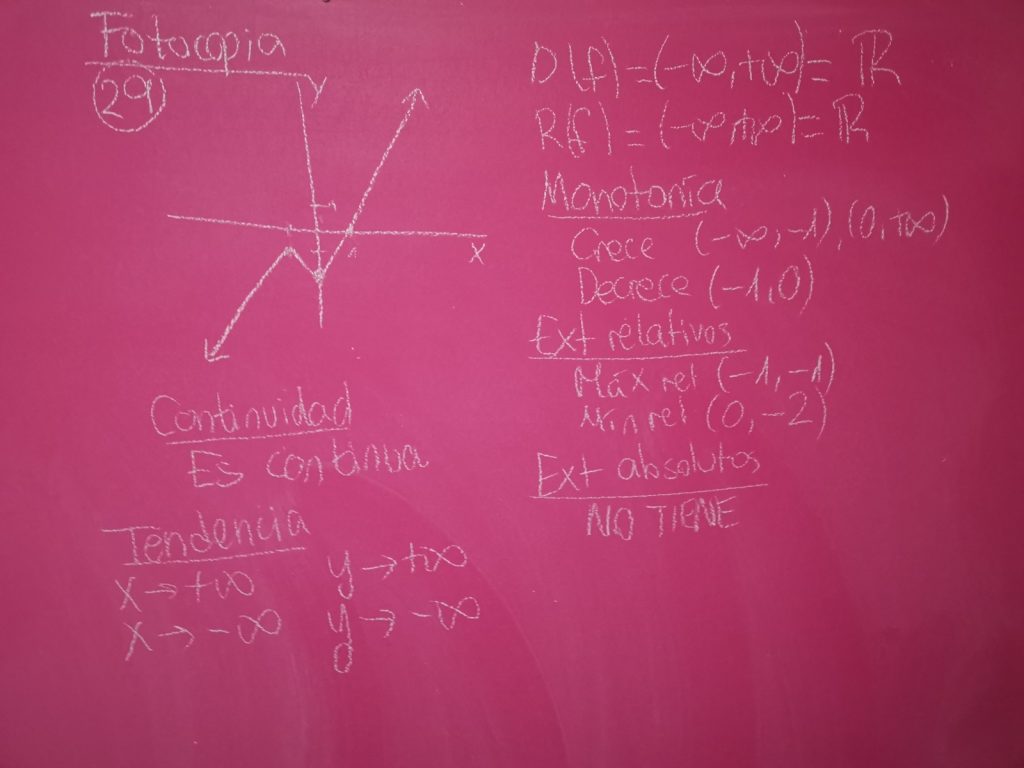 Fotocopia
29
y
1
1
x
Continuidad
Es continua
Tendencia
x → +∞ y → +∞
x → -∞ y → -∞
D(f) = (-∞, +∞) = ℝ
R(f) = (-∞, +∞) = ℝ
Monotonía
Crece (-∞, -1), (0, +∞)
Decrece (-1, 0)
Ext relativos
Máx rel (-1, -1)
Mín rel (0, -2)
Ext absolutos
NO TIENE